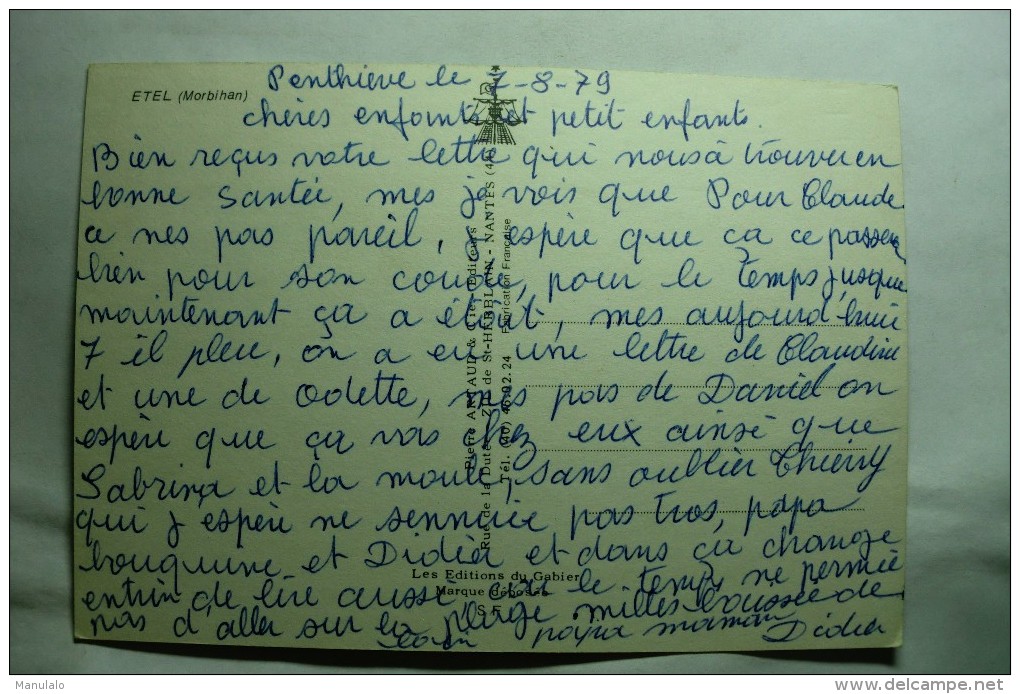 ETEL (Morbihan)
Penthièvre le 7-8-79
chères enfants et petit enfants.
Bien reçus votre lettre qui nous à trouver en
bonne santée, mes je vois que Pour Claude
ce nes pas pareil, j'espère que ça ce passera
bien pour son coude, pour le temps jusque
maintenant ça a étéut, mes aujourd'huie
7 il pleu, on a eu une lettre de Claudine
et une de Odette, mes pas de Daniel on
espère que ça vas chez eux ainsé que
Sabrina et la moule, sans oublier Thierry
qui j'espère ne sennuie pas tros, papa
bouquine et Didier et dans sa change
entrin de lire aussi car le temps ne permée
pas d'aller sur la plage milles baussée de
papa maman Didier
Pierre ARTAUD & Cie - Editeurs
Rue de la Dutée - Z.I. de St-HERBLAIN - NANTES (44)
Tél. (40) 46.02.24 Fabrication Française
Les Editions du Gabier
Marque déposée
Manulalo
delcampe.net